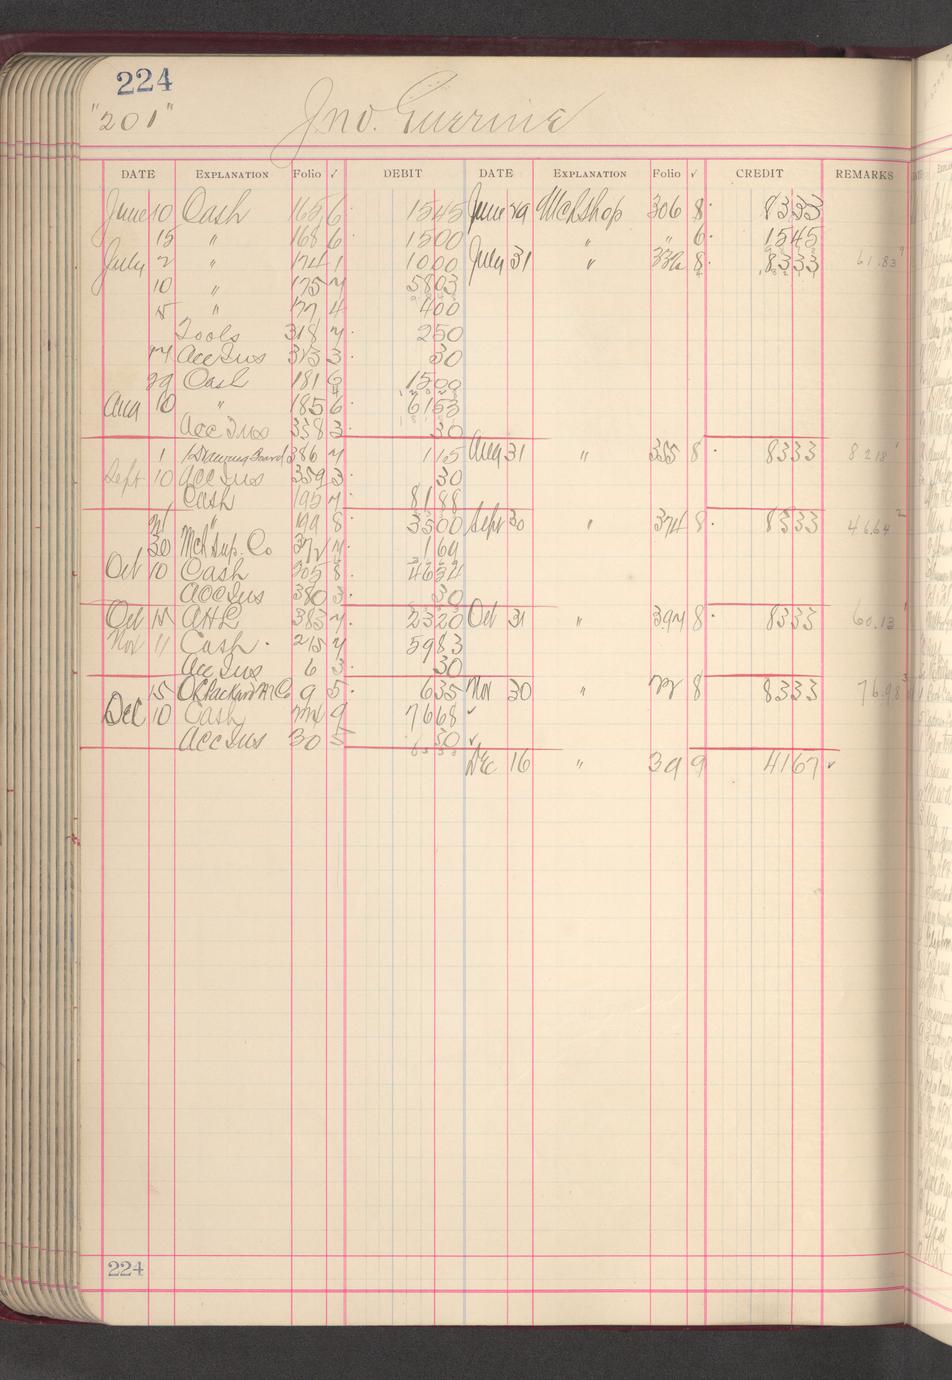 224
"201"
Jno. Guerrine
DATE EXPLANATION Folio √ DEBIT DATE EXPLANATION Folio √ CREDIT REMARKS
June 10 Cash 165 6 1545 June 29 MchShop 306 8 8333
15 " 168 6 1500 " " 6 1545
July 2 " 174 1 1000 July 31 " 336 8 8333 61.83
10 " 175 7 5803
15 " 177 4 400
Tools 318 7 250
17 Acc Ins 313 3 30
29 Cash 181 6 1500
Aug 10 " 185 6 6153
Acc Ins 338 3 30
1 Drawing Board 386 7 115 Aug 31 " 355 8 8333 82.18
Sept 10 Acc Ins 359 3 30
Cash 195 7 8188
21 " 199 8 3500 Sept 30 " 374 8 8333 46.64
30 Mch Sup. Co 372 7 169
Oct 10 Cash 205 8 4634
Acc Ins 380 3 30
Oct 15 AHR 383 7 2320 Oct 31 " 394 8 8333 60.13
Nov 11 Cash 215 7 5983
Acc Ins 6 3 30
15 9 5 635 Nov 30 " 22 8 8333 76.98
Dec 10 Cash 9 7668 ✓
Acc Ins 30 5 30 ✓
Dec 16 " 39 9 4167 ✓
224